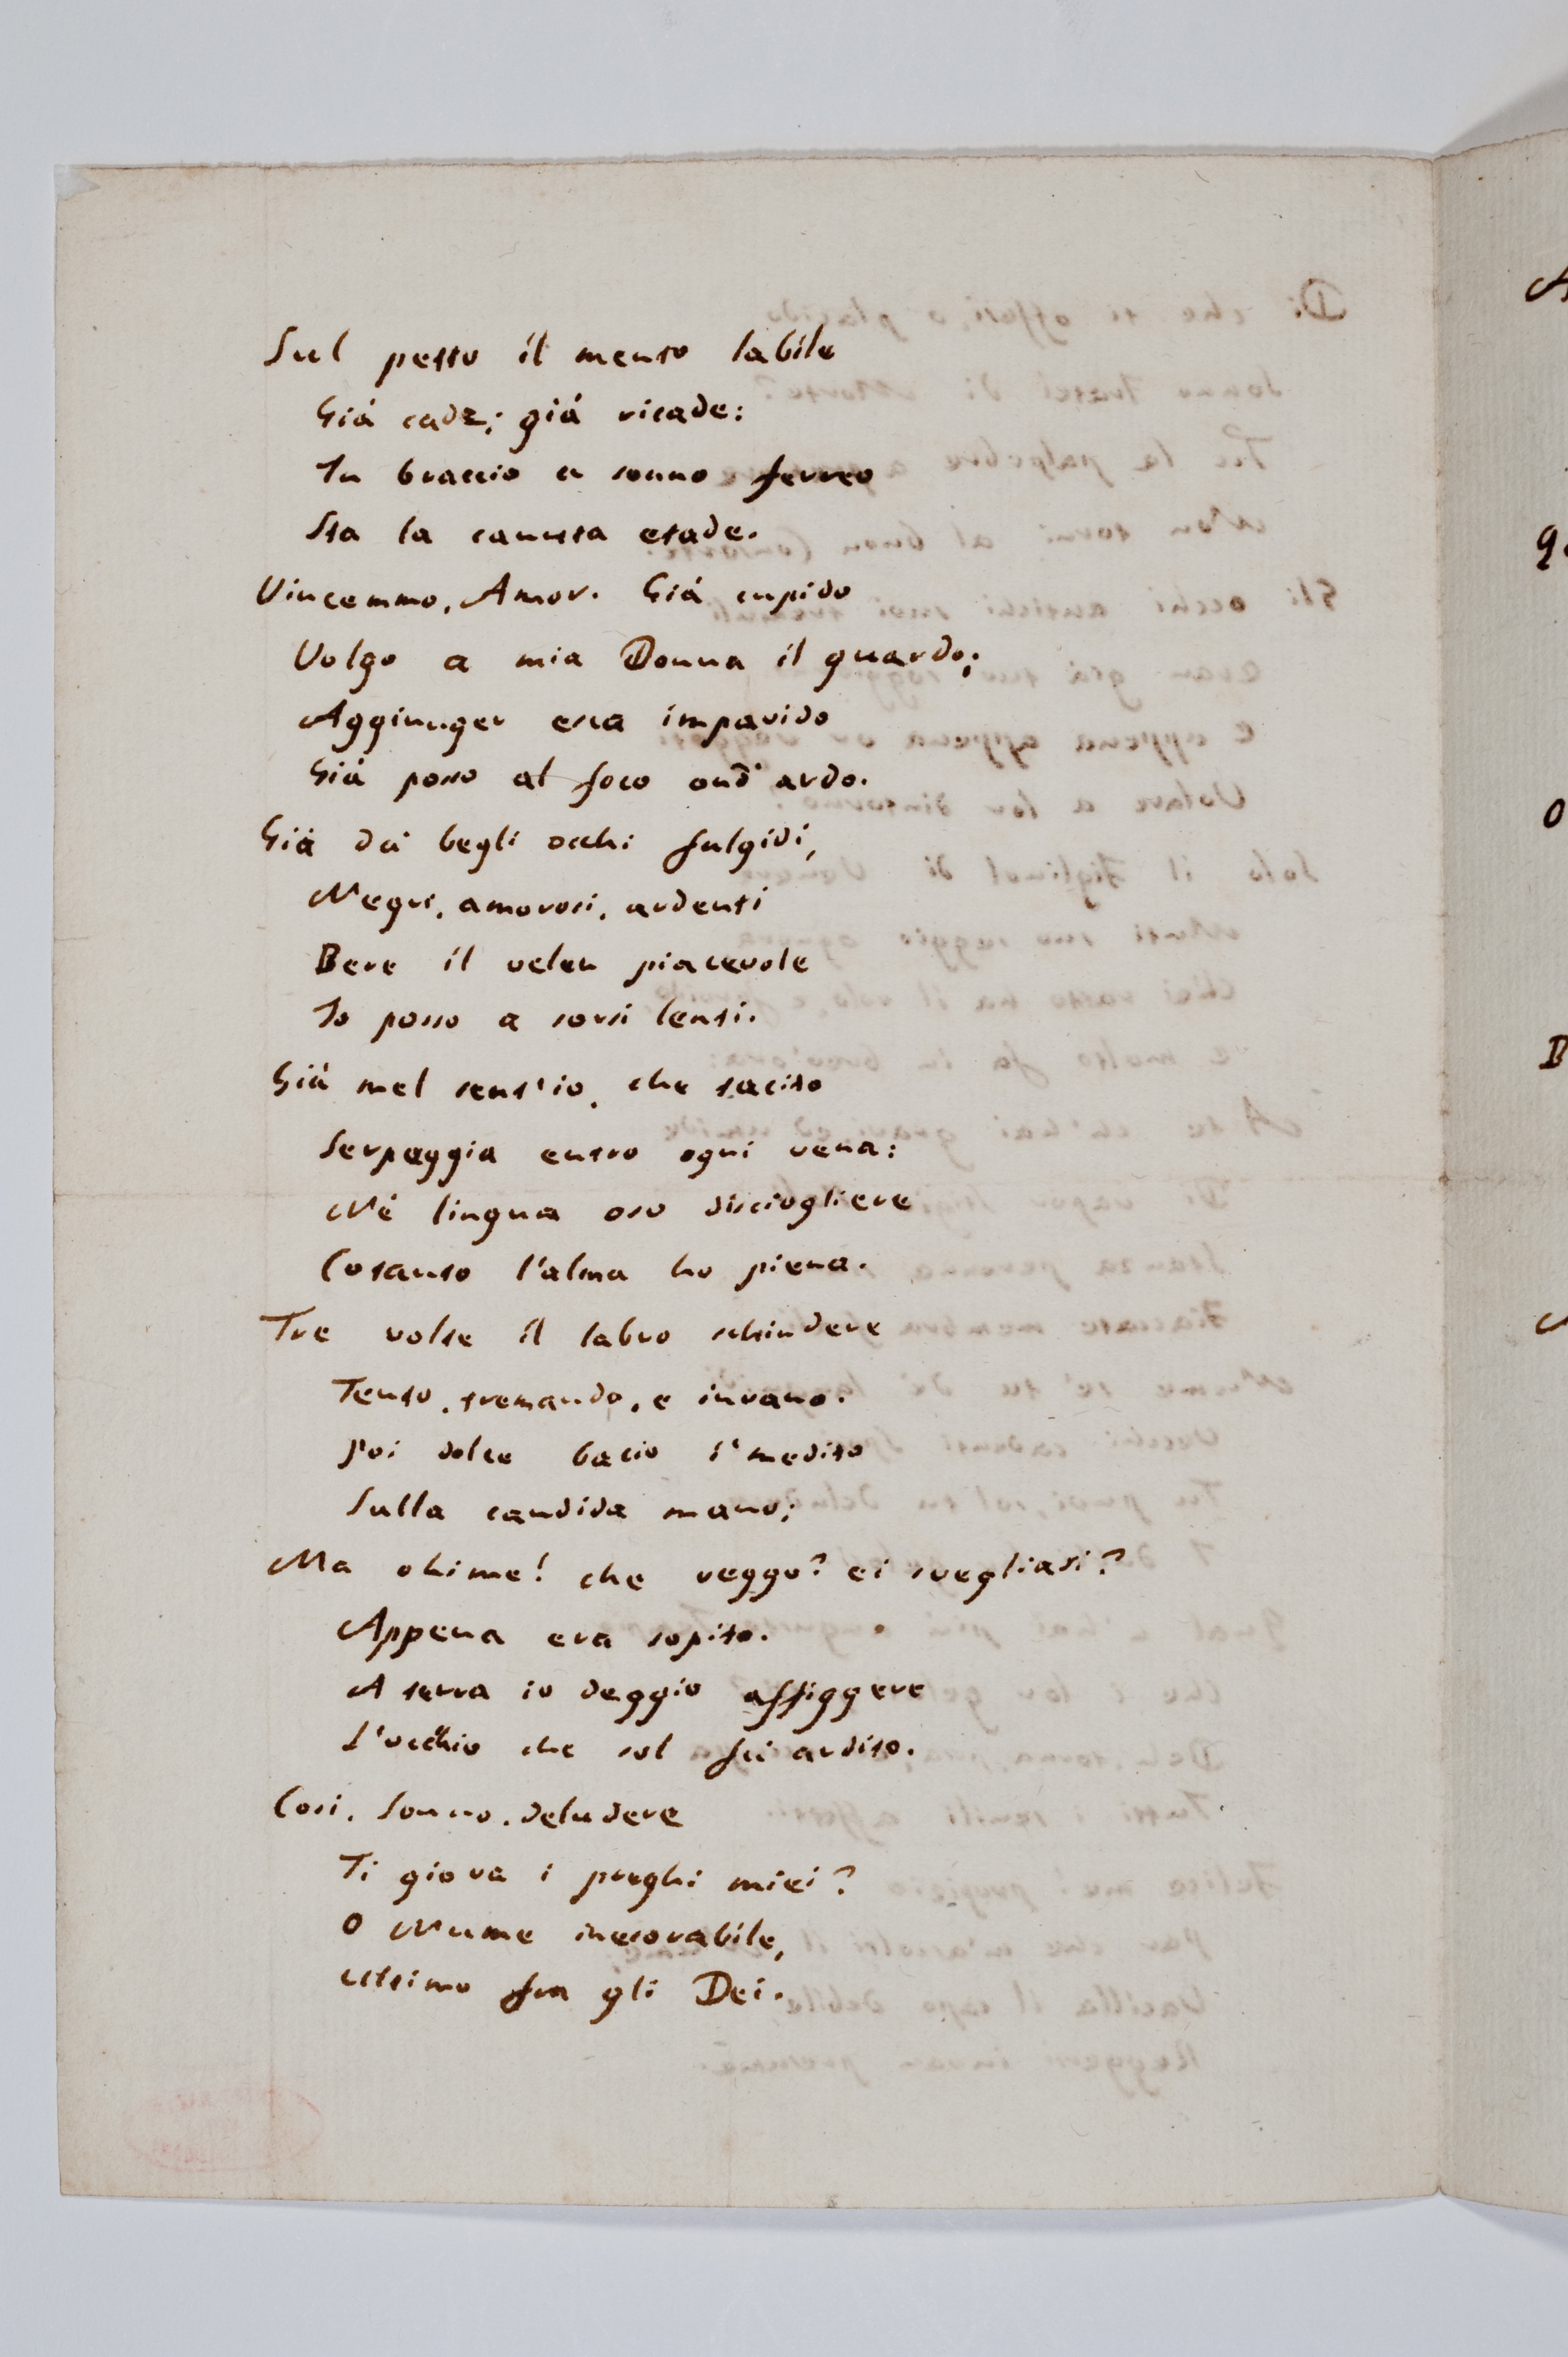 Sul petto il mento labile
Giá cade; giá ricade:
In braccio a sonno ferreo
Sta la canuta etade.
Vincemmo, Amor. Giá cupido
Volgo a mia Donna il guardo;
Aggiunger esca impavido
Giá posso al foco ond'ardo.
Giá da' begli occhi fulgidi,
Negri, amorosi, ardenti
Bere il velen piacevole
Io posso a sorsi lenti.
Giá mel sent'io, che tacito
Serpeggia entro ogni vena:
Né lingua oso disciogliere
Cotanto l'alma ho piena.
Tre volte il labro schiudere
Tento, tremando, e invano.
Poi dolce bacio i' medito
Sulla candida mano;
Ma ohime! che veggo? ei svegliasi?
Appena era sopito.
A terra io deggio affiggere
L'occhio che sol fu ardito.
Cosi, Sonno, deludere
Ti giova i preghi miei?
O Nume inesorabile,
Ultimo fra gli Dei.